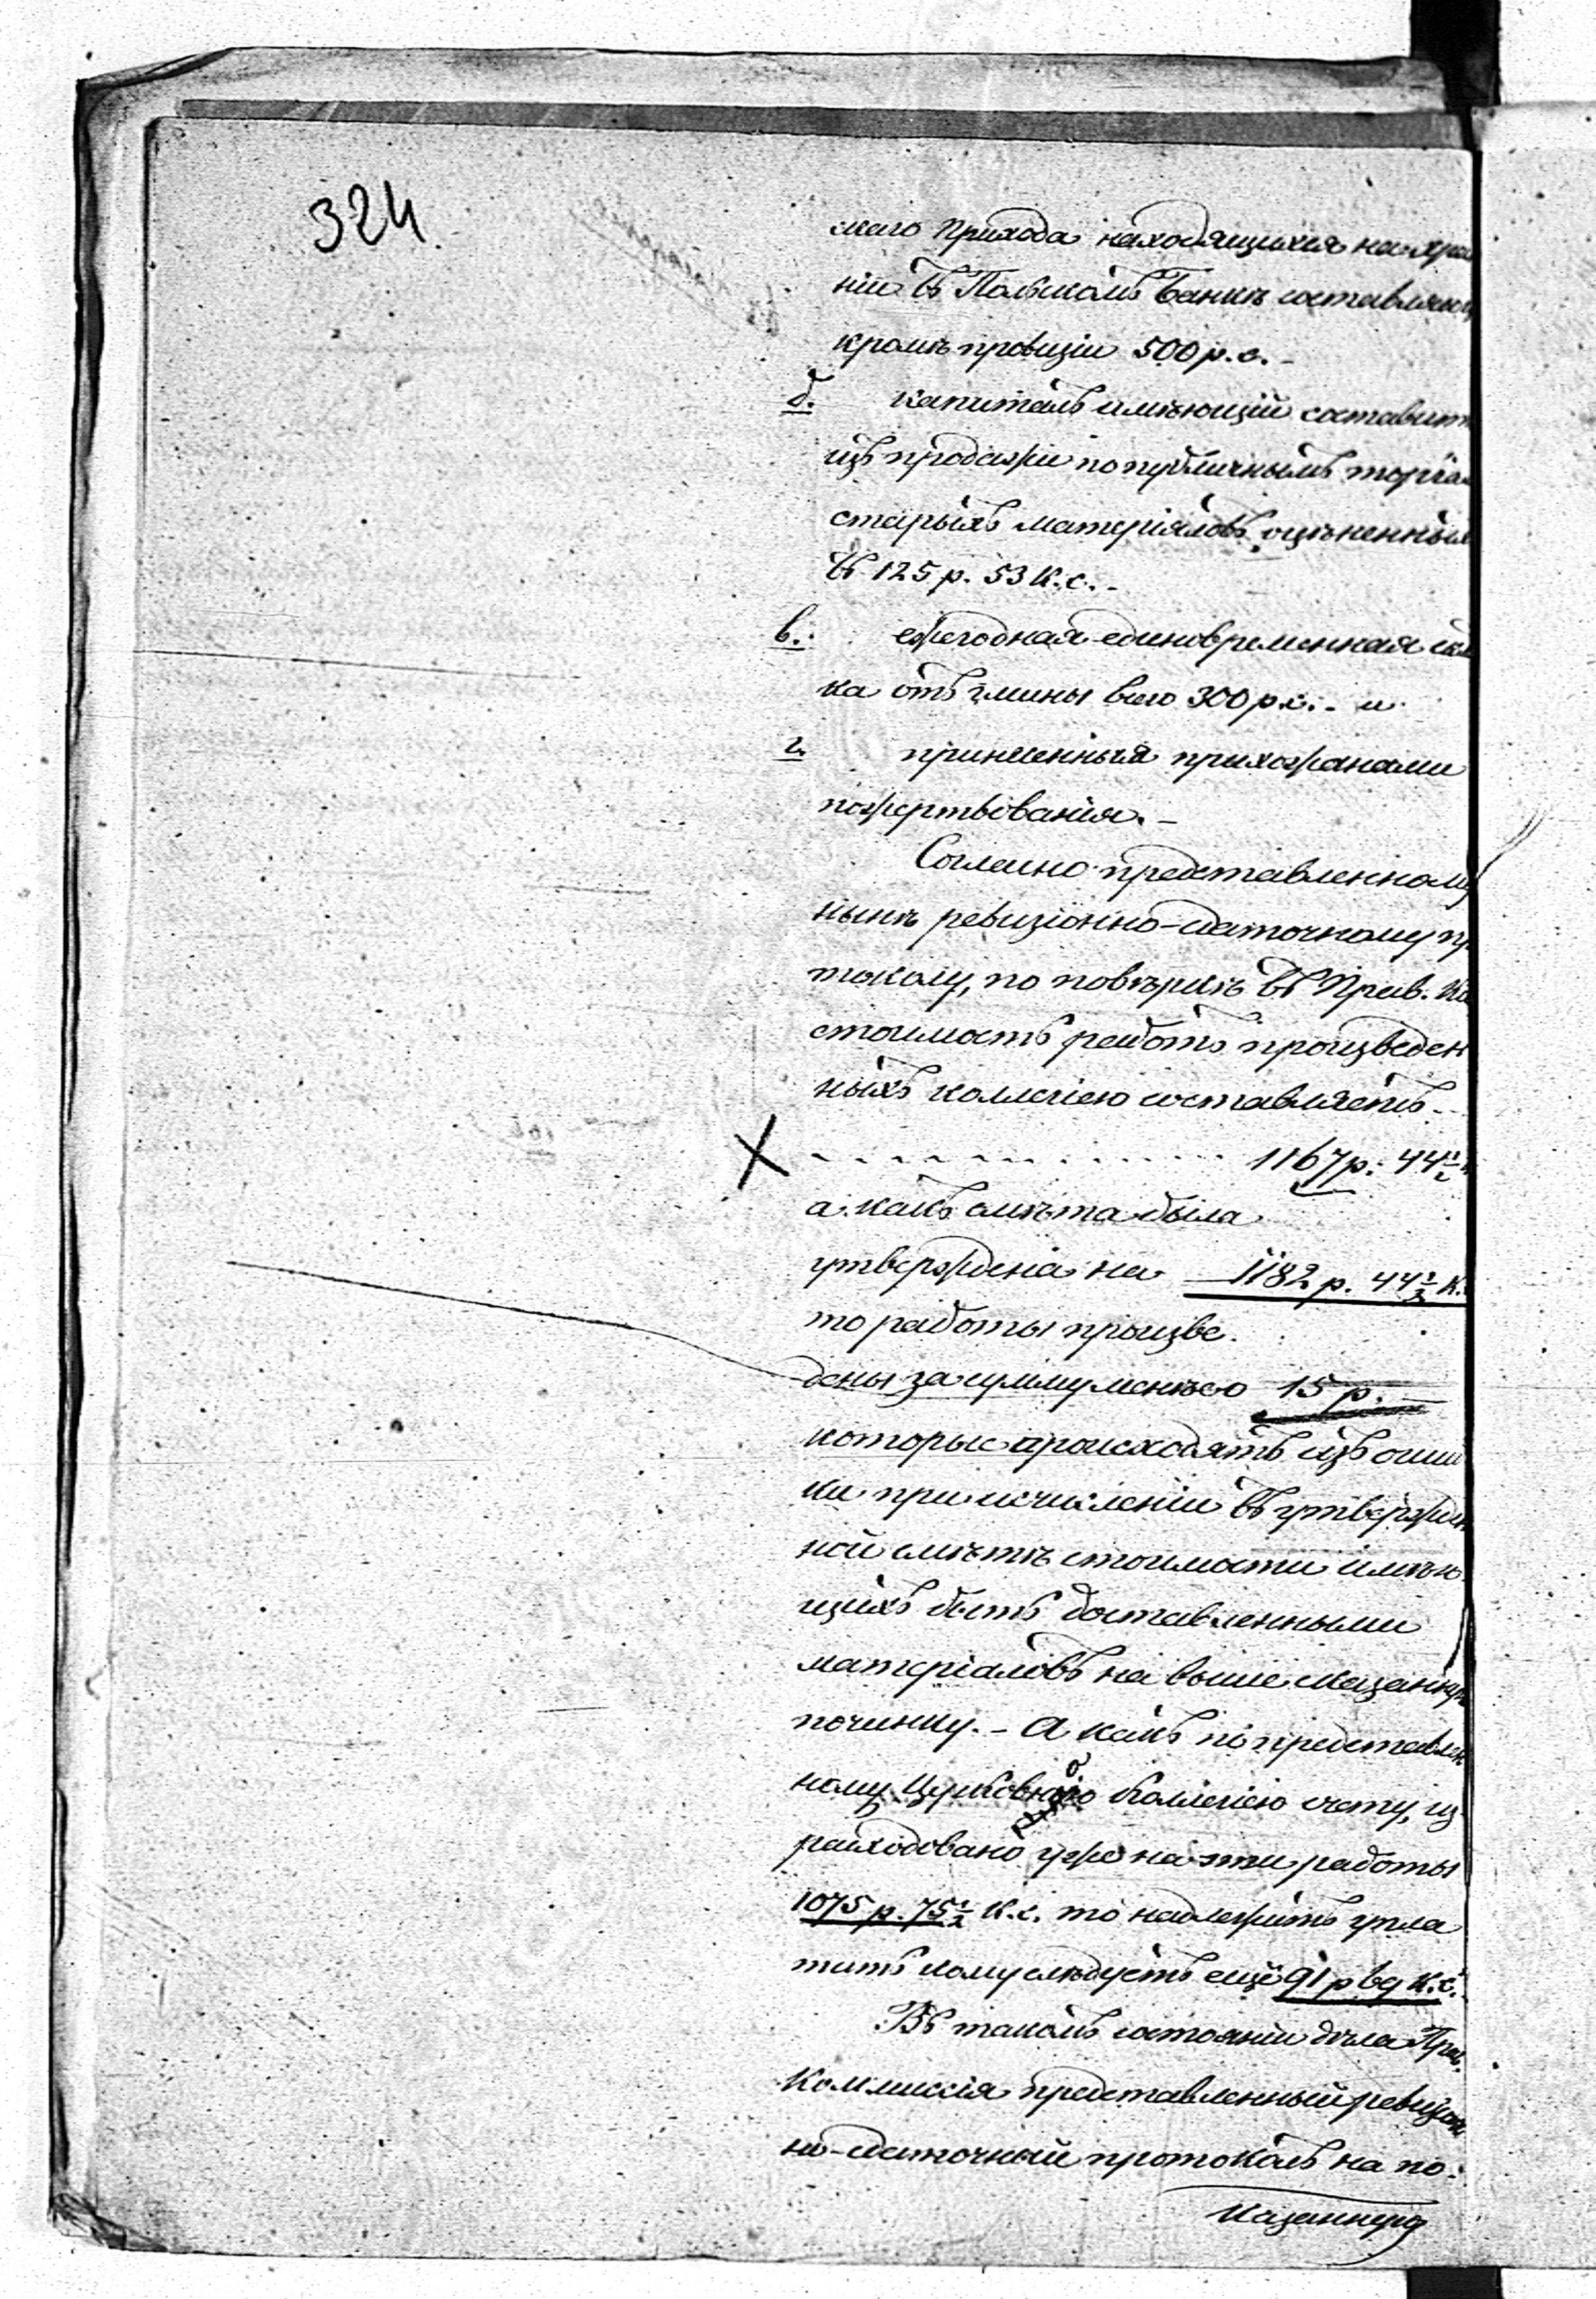 324.
скаго прихода находящихся на хра
ніи въ Польскомъ Банкѣ составляющ
кромѣ провизіи 500 р. с. -
б. капиталъ имѣющій составит
изъ продажи по публичнымъ торга
старыхъ матеріяловъ оцѣненны
въ 125 р. 53 к. с. -
в. ежегодная единовременная
ка отъ гмины всего 300 р с. - и
г. принесенныя прихожанами
пожертвованія. -
Согласно представленному
нынѣ ревизіонно-сдаточному пр
токолу, по повѣркѣ въ Прав. Ко
стоимость работъ произведен
ныхъ коллегіею составляетъ -
1167 р. 44½
а какъ смѣта была
утверждена на 1182 р. 44½ к.
то работы произве
дены за сумму менѣею 15 р.
которые происходятъ изъ ошиб
ки при исчисленіи въ утвержден
ной смѣтѣ стоимости имѣю
щихъ быть доставленными
матеріаловъ на выше сказанную
починку. - А какъ по представлен
ному Церковною Коллегіею счету, из
расходовано уже на эти работы
1075 р. 75½ к. с. то надлежитъ упла
тить кому слѣдуетъ еще 91 р 69 к. с.
Въ такомъ состояніи дѣла Прав.
Коммиссія представленный ревизіон
но-сдаточный протоколъ на по-
казанную